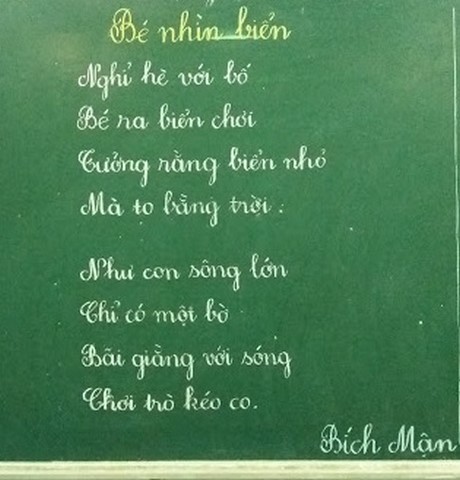 Bé nhìn biển
Nghỉ hè với bố
Bé ra biển chơi
Tưởng rằng biển nhỏ
Mà to bằng trời.
Như con sông lớn
Chỉ có một bờ
Bãi giằng với sóng
Chơi trò kéo co.
Bích Mận